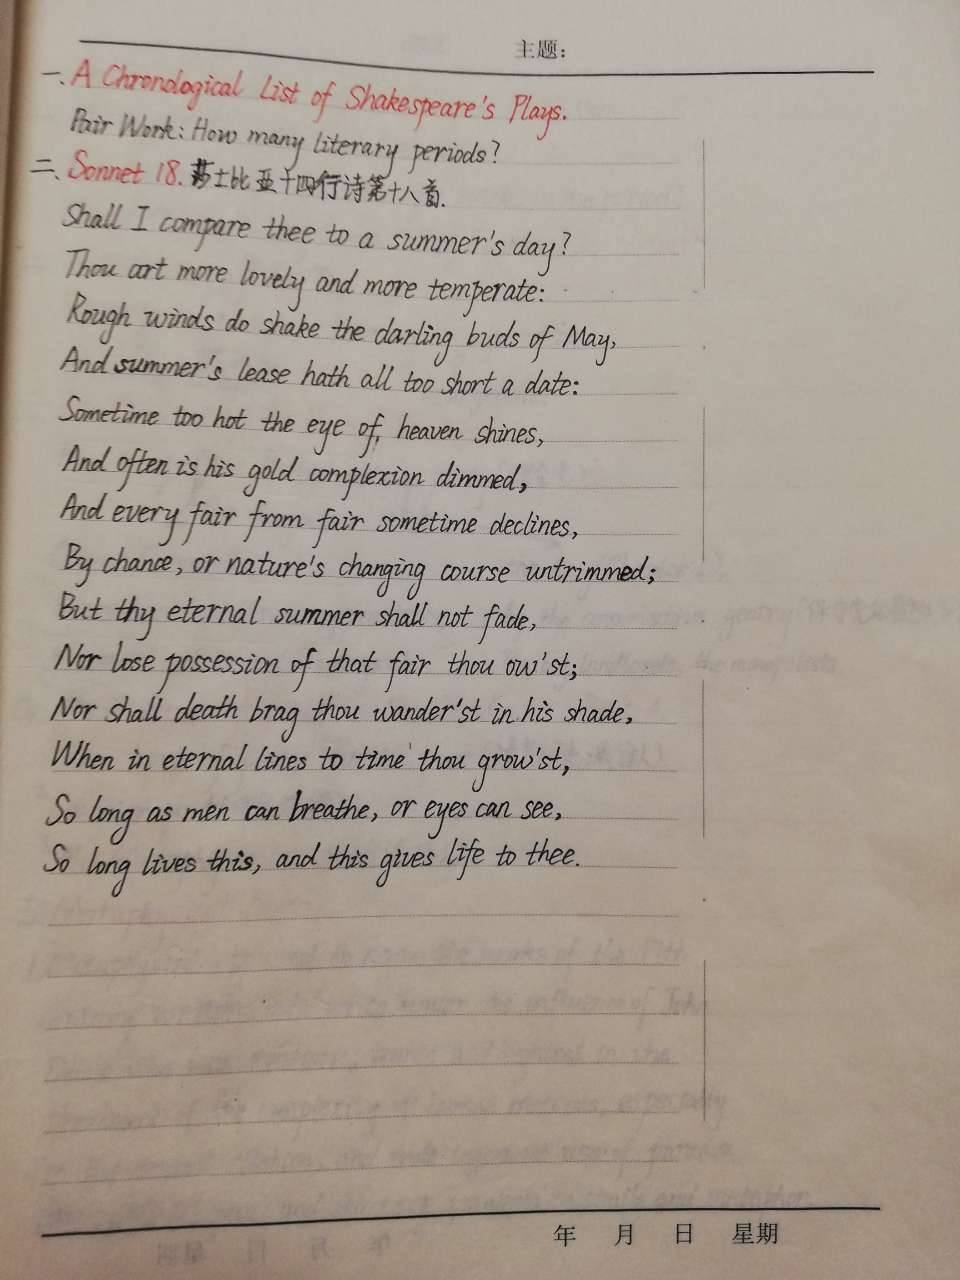 主题:
一、A Chronological List of Shakespeare's Plays.
Pair Work: How many literary periods?
二、Sonnet 18. 莎士比亚十四行诗第十八首.
Shall I compare thee to a summer's day?
Thou art more lovely and more temperate:
Rough winds do shake the darling buds of May,
And summer's lease hath all too short a date:
Sometime too hot the eye of, heaven shines,
And often is his gold complexion dimmed,
And every fair from fair sometime declines,
By chance, or nature's changing course untrimmed;
But thy eternal summer shall not fade,
Nor lose possession of that fair thou ow'st;
Nor shall death brag thou wander'st in his shade,
When in eternal lines to time thou grow'st,
So long as men can breathe, or eyes can see,
So long lives this, and this gives life to thee.
年 月 日 星期